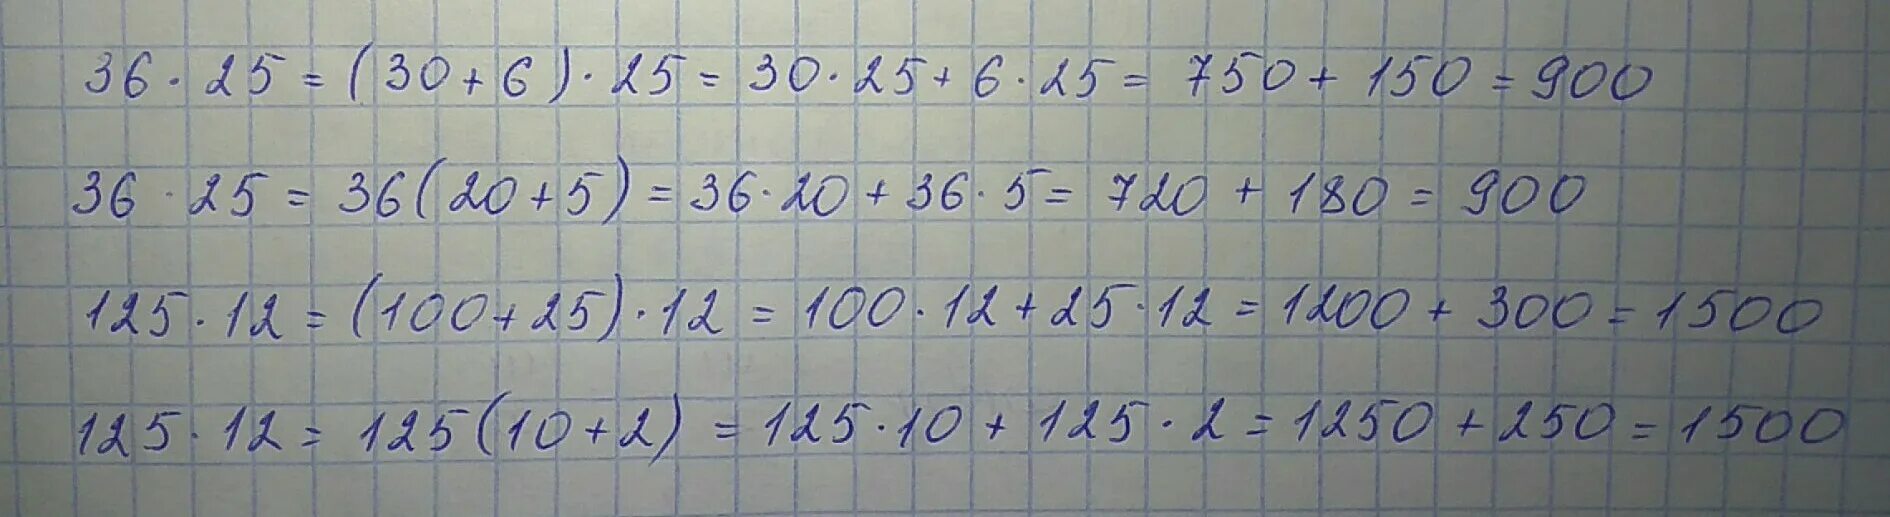 36 · 25 = (30 + 6) · 25 = 30 · 25 + 6 · 25 = 750 + 150 = 900
36 · 25 = 36(20 + 5) = 36 · 20 + 36 · 5 = 720 + 180 = 900
125 · 12 = (100 + 25) · 12 = 100 · 12 + 25 · 12 = 1200 + 300 = 1500
125 · 12 = 125(10 + 2) = 125 · 10 + 125 · 2 = 1250 + 250 = 1500